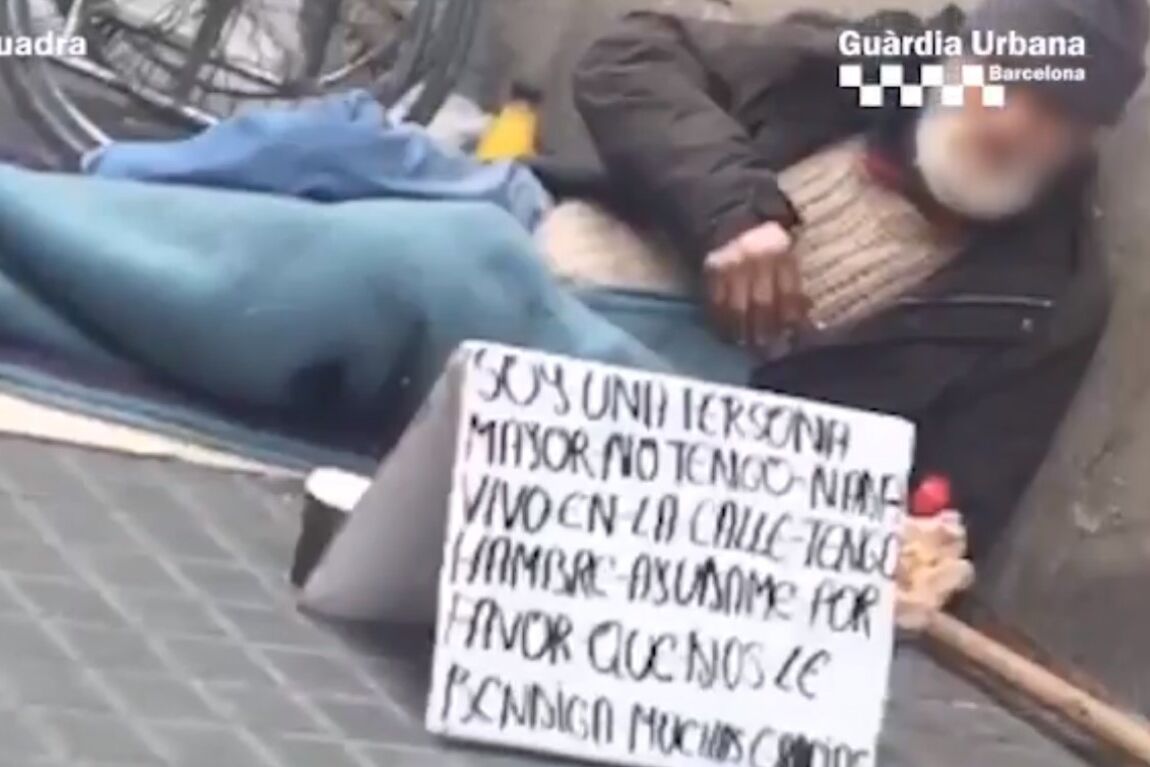 uadra
Guàrdia Urbana
Barcelona
SOY UNA PERSONA
MAYOR-NO TENGO-NADA
VIVO EN-LA CALLE-TENGO
HAMBRE-AYUDAME-POR
FAVOR QUE NOS LE
BENDIGA MUCHAS GRACIAS